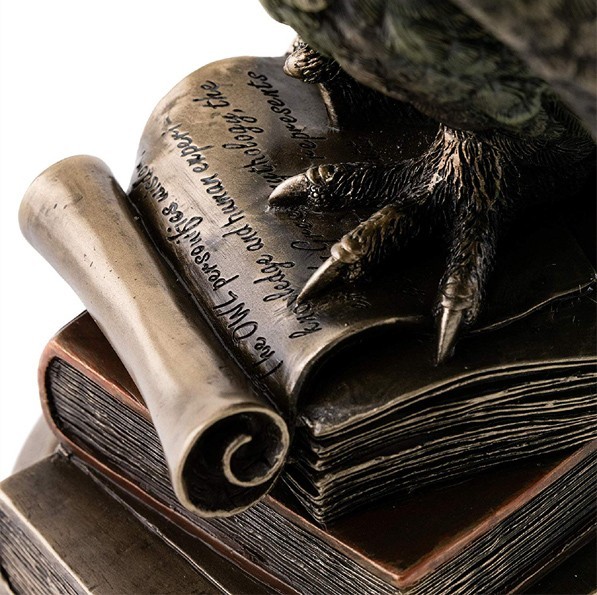 The OWL personifies
knowledge and human experi-
mythology, the
represents